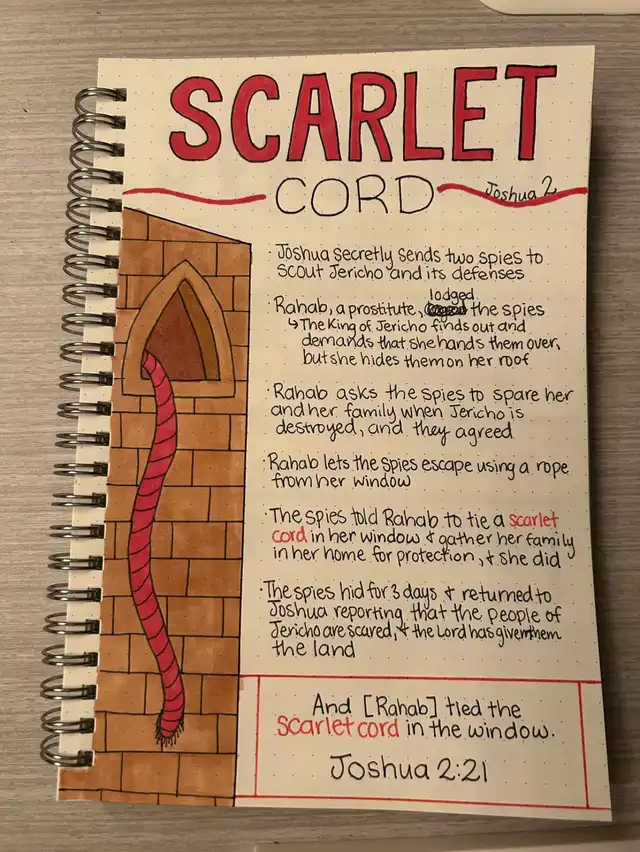 SCARLET
CORD
Joshua 2
· Joshua secretly sends two spies to
scout Jericho and its defenses
· Rahab, a prostitute, lodged the spies
↳ The King of Jericho finds out and
demands that she hands them over,
but she hides them on her roof
· Rahab asks the spies to spare her
and her family when Jericho is
destroyed, and they agreed
· Rahab lets the spies escape using a rope
from her window
· The spies told Rahab to tie a scarlet
cord in her window & gather her family
in her home for protection, & she did
· The spies hid for 3 days & returned to
Joshua reporting that the people of
Jericho are scared, & the Lord has given them
the land
And [Rahab] tied the
scarlet cord in the window.
Joshua 2:21